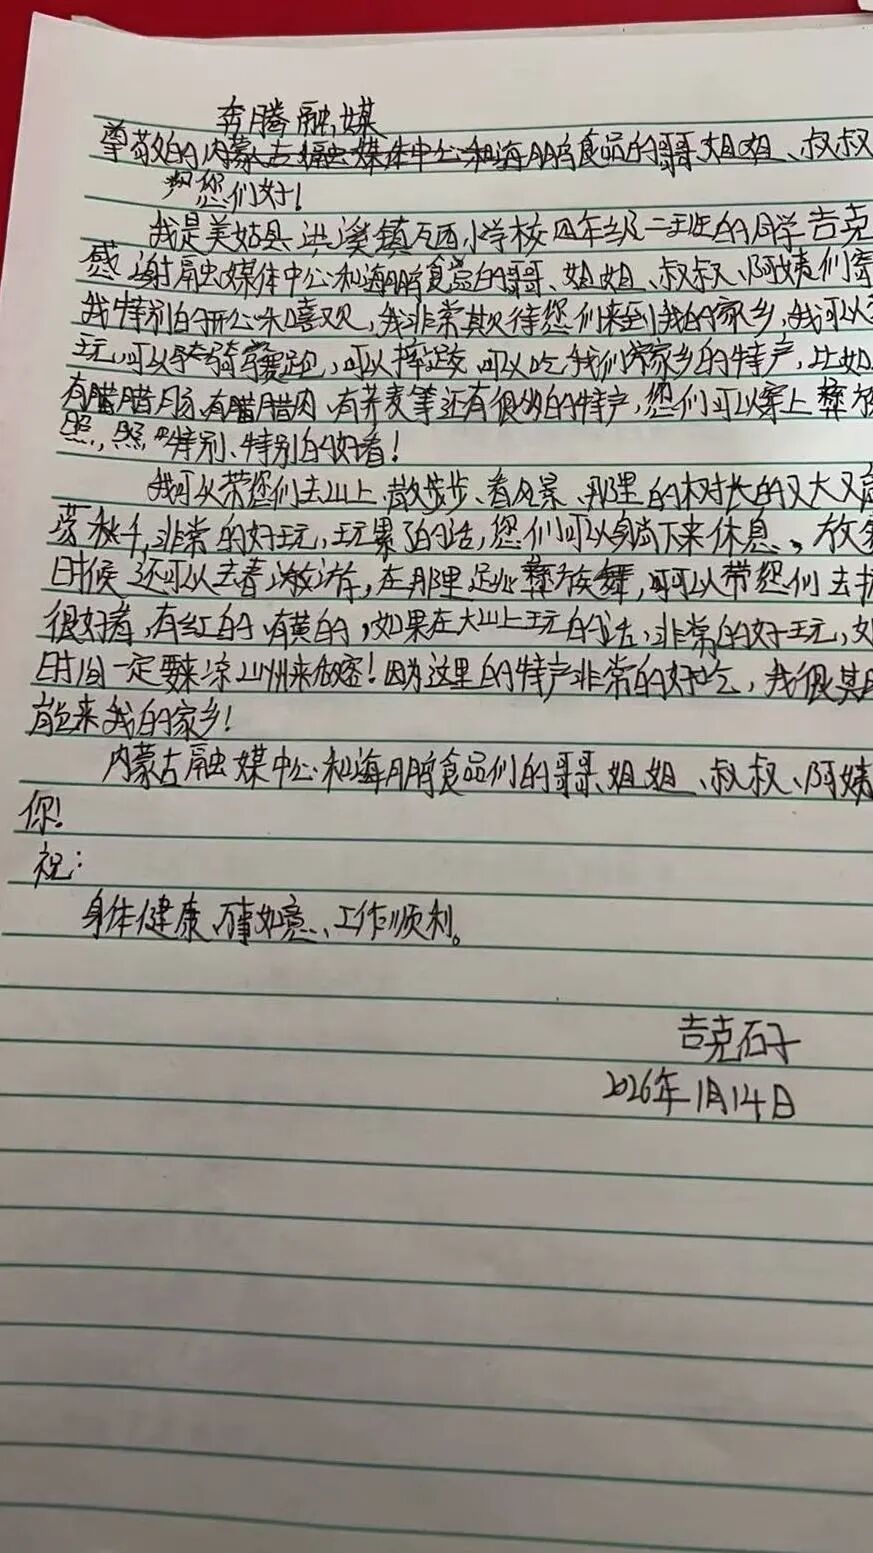 奔腾融媒
尊敬的内蒙古融媒体中心和海鹏食品的哥哥、姐姐、叔叔
您们好！
我是美姑县洪溪镇瓦西小学校四年级二班的同学吉克
感谢融媒体中心和海鹏食堂的哥哥、姐姐、叔叔、阿姨们
我特别的开心和喜欢，我非常期待您们来到我的家乡，我可以
玩，可以骑马赛跑，可以摔跤，可以吃我们家乡的特产，比如
有腊腊肠、有腊腊肉、有荞麦等还有很多的特产，您们可以穿上彝族
照，照特别、特别的好看！
我可以带您们去山上散散步、看风景、那里的树长的又大又高
荡秋千，非常的好玩，玩累了的话，您们可以躺下来休息，放
时候还可以去看，在那里跳彝族舞，可以带您们去
很好看，有红的、有黄的，如果在大山上玩的话，非常的好玩，如
时间一定要来凉山州来做客！因为这里的特产非常的好吃，我很期
能来我的家乡！
内蒙古融媒中心和海鹏食品们的哥哥、姐姐、叔叔、阿姨
你！
祝：
身体健康、万事如意、工作顺利。
吉克石子
2026年1月14日